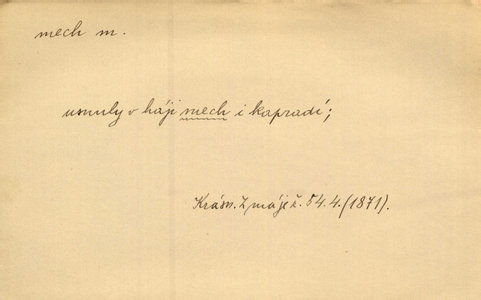 mech m.
usnuly v háji mech i kapradí;
Krásn. Z máje ž. 54.4. (1871).